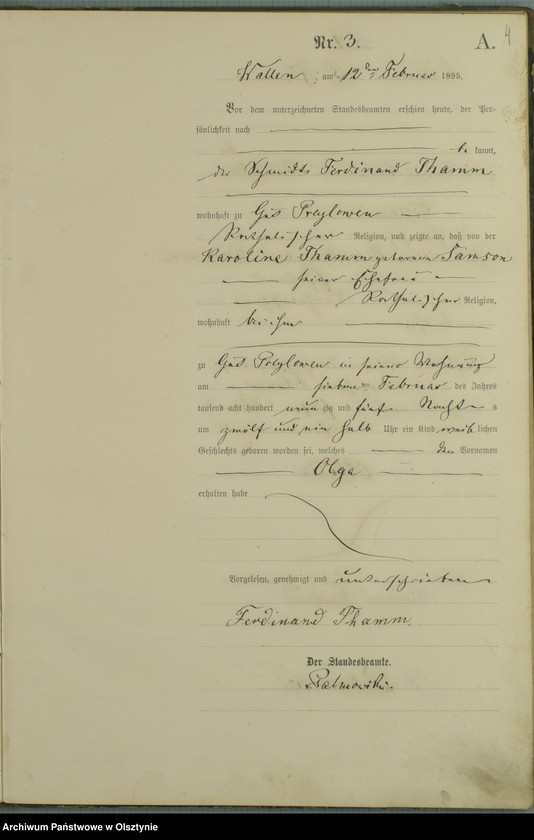 Nr. 3.
A.
4
Wallen, am 12ten Februar 1895.
Vor dem unterzeichneten Standesbeamten erschien heute, der Per-
sönlichkeit nach
be kannt,
der Schmidt Ferdinand Thamm
wohnhaft zu Gut
Katholischer Religion, und zeigte an, daß von der
Karoline Thamm geborene Samson
seiner Ehefrau
Katholischer Religion,
wohnhaft bei ihm
zu Gut in seiner Wohnung
am sieben Februar des Jahres
tausend acht hundert neunzig und fünf Nacht s
um zwölf und ein halb Uhr ein Kind weib lichen
Geschlechts geboren worden sei, welches den Vornamen
Olga
erhalten habe
Vorgelesen, genehmigt und unterschrieben
Ferdinand Thamm.
Der Standesbeamte.
Archiwum Państwowe w Olsztynie